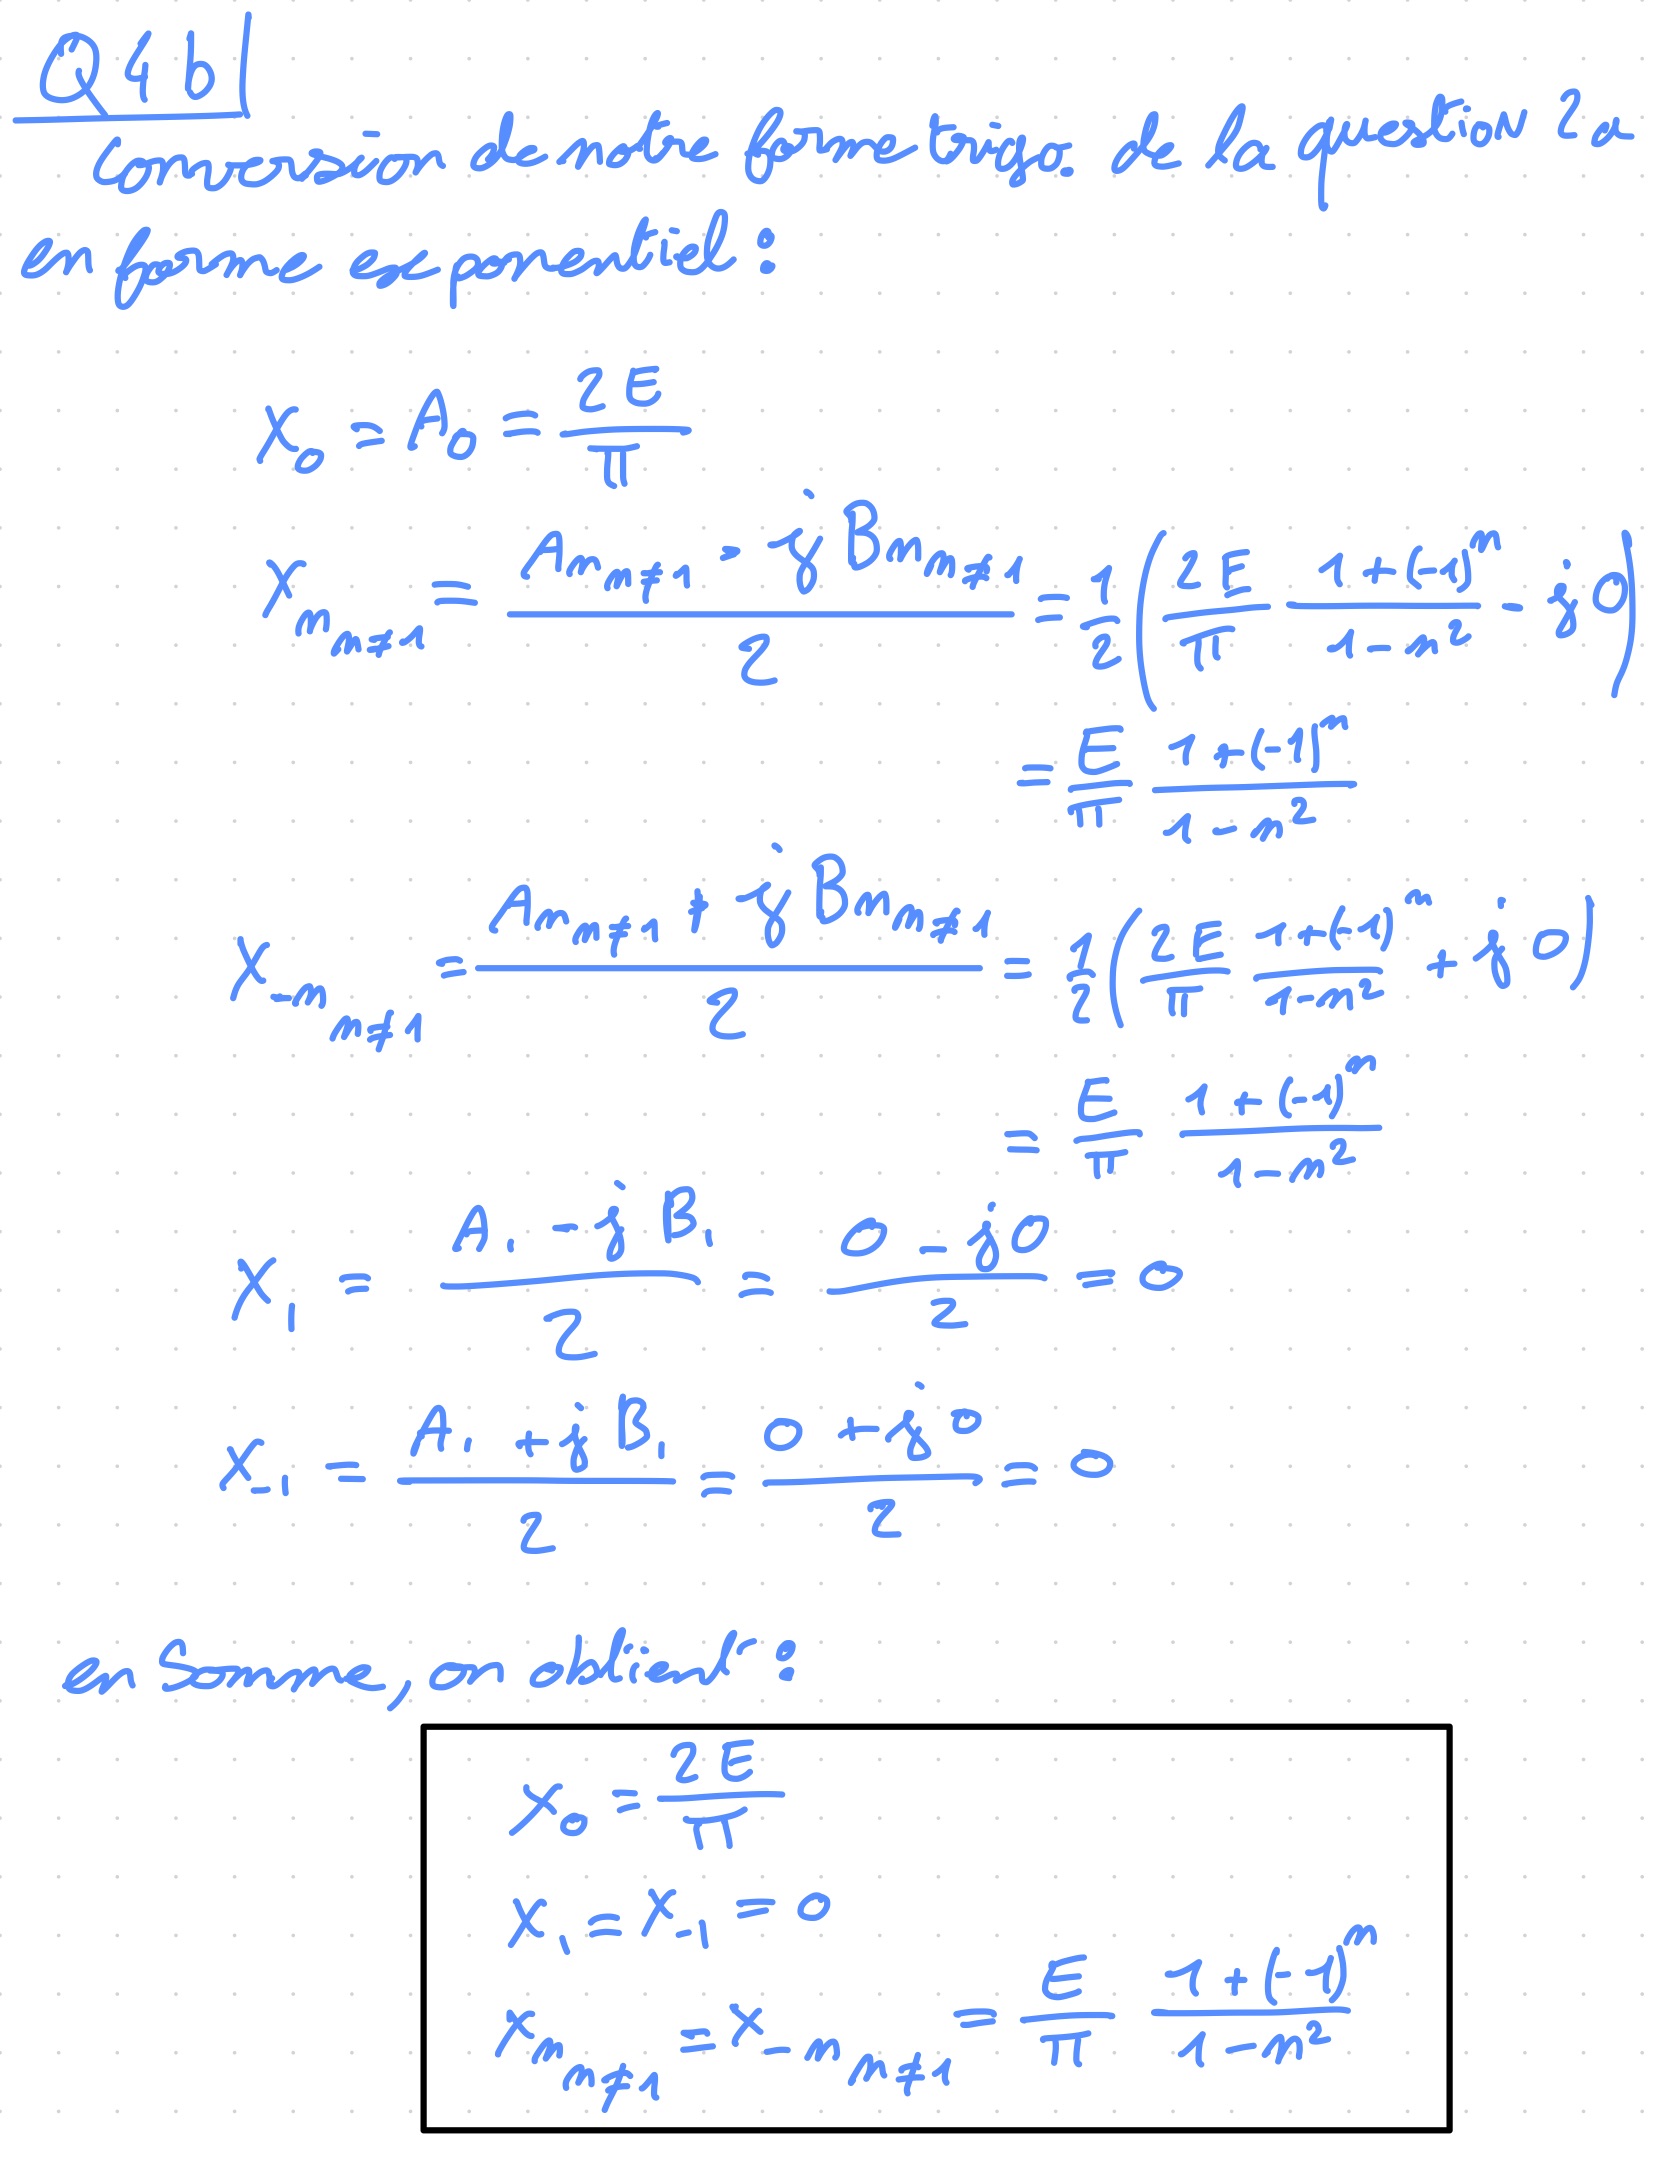 Q4b
Conversion de notre forme trigo. de la question 2a
en forme exponentiel :
X₀ = A₀ = 2E/π
Xₙ ₙ≠₁ = (Aₙ ₙ≠₁ - jBₙ ₙ≠₁)/2 = 1/2 (2E/π (1+(-1)ⁿ)/(1-n²) - j0)
= E/π (1+(-1)ⁿ)/(1-n²)
X₋ₙ ₙ≠₁ = (Aₙ ₙ≠₁ + jBₙ ₙ≠₁)/2 = 1/2 (2E/π (1+(-1)ⁿ)/(1-n²) + j0)
= E/π (1+(-1)ⁿ)/(1-n²)
X₁ = (A₁ - jB₁)/2 = (0 - j0)/2 = 0
X₋₁ = (A₁ + jB₁)/2 = (0 + j0)/2 = 0
en Somme, on obtient :
X₀ = 2E/π
X₁ = X₋₁ = 0
Xₙ ₙ≠₁ = X₋ₙ ₙ≠₁ = E/π (1+(-1)ⁿ)/(1-n²)